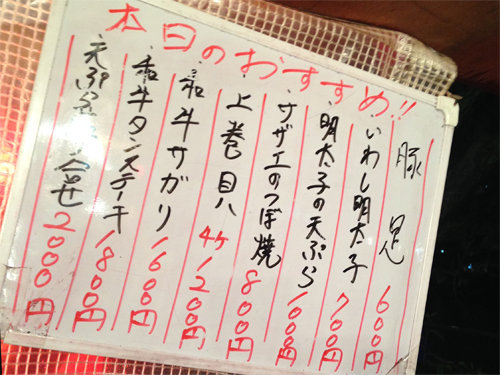 本日のおすすめ!!
豚足 600円
いわし明太子 700円
・明太子の天ぷら 1000円
・サザエのつぼ焼 800円
・上巻貝 4ケ 1200円
・和牛サガリ 1600円
・和牛タンステーキ 1800円
・天ぷら盛合せ 2000円